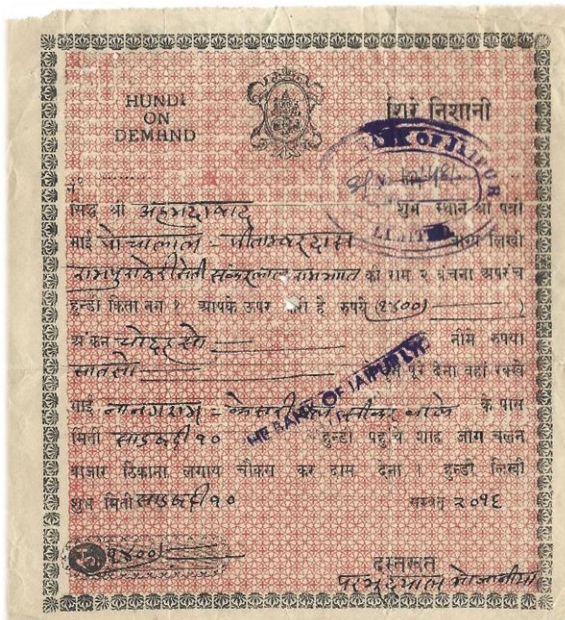 HUNDI
ON
DEMAND
शिरे निशानी
BANK OF JAIPUR
LIMITED
नं
सिद्ध श्री अहमदाबाद शुभ स्थान श्री पत्री
भाई पोचालाल - पीताम्बरदास लिखी
रामपुरा सेती शंकरलाल रामभगत का राम २ बंचना अपरंच
हुन्डी किता नग १ आपके ऊपर करी है रुपये १४००)
अंकन चोदह सो नीमे रुपया
सातसो पूरे देना यहां रक्खे
भाई नानगराम - केसरी सीकर वाले के पास
मिती साडबदी १० हुन्डी पहुंचे शाह जोग चलन
बाजार ठिकाना लगाय चौकस कर दाम देना । हुन्डी लिखी
शुभ मिती साडबदी १० सम्वत् २०१६
THE BANK OF JAIPUR LTD
रु १४००)
दस्तखत